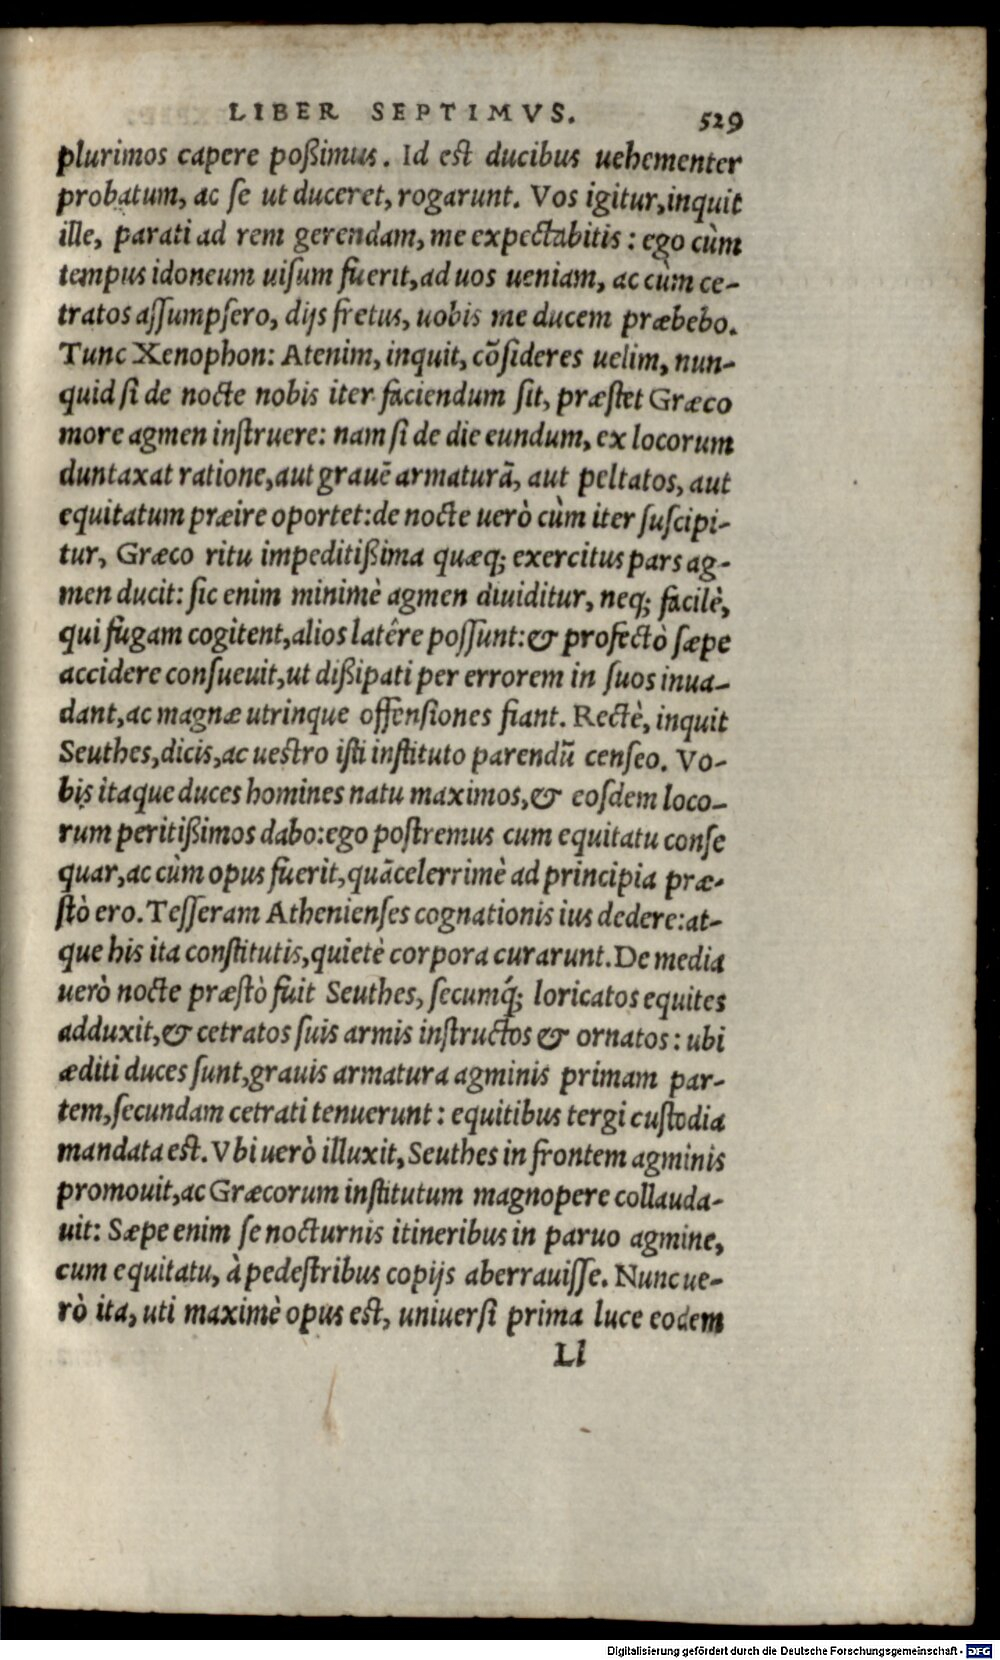 LIBER SEPTIMVS. 529
plurimos capere poßimus. Id est ducibus uehementer
probatum, ac se ut duceret, rogarunt. Vos igitur, inquit
ille, parati ad rem gerendam, me expectabitis: ego cùm
tempus idoneum uisum fuerit, ad uos ueniam, ac cùm ce-
tratos assumpsero, dijs fretus, uobis me ducem præbebo.
Tunc Xenophon: Atenim, inquit, cõsideres uelim, nun-
quid si de nocte nobis iter faciendum sit, præstet Græco
more agmen instruere: nam si de die eundum, ex locorum
duntaxat ratione, aut grauẽ armaturã, aut peltatos, aut
equitatum præire oportet: de nocte uerò cùm iter suscipi-
tur, Græco ritu impeditißima quæq; exercitus pars ag-
men ducit: sic enim minimè agmen diuiditur, neq; facilè,
qui fugam cogitent, alios latêre possunt: & profectò sæpe
accidere consueuit, ut dißipati per errorem in suos inua-
dant, ac magnæ utrinque offensiones fiant. Rectè, inquit
Seuthes, dicis, ac uestro isti instituto parendũ censeo. Vo-
bis itaque duces homines natu maximos, & eosdem loco-
rum peritißimos dabo: ego postremus cum equitatu conse
quar, ac cùm opus fuerit, quãcelerrimè ad principia præ-
stò ero. Tesseram Athenienses cognationis ius dedere: at-
que his ita constitutis, quietè corpora curarunt. De media
uerò nocte præstò fuit Seuthes, secumq́; loricatos equites
adduxit, & cetratos suis armis instructos & ornatos: ubi
æditi duces sunt, grauis armatura agminis primam par-
tem, secundam cetrati tenuerunt: equitibus tergi custodia
mandata est. Vbi uerò illuxit, Seuthes in frontem agminis
promouit, ac Græcorum institutum magnopere collauda-
uit: Sæpe enim se nocturnis itineribus in paruo agmine,
cum equitatu, à pedestribus copijs aberrauisse. Nunc ue-
rò ita, uti maximè opus est, uniuersi prima luce eodem
Ll
Digitalisierung gefördert durch die Deutsche Forschungsgemeinschaft - DFG